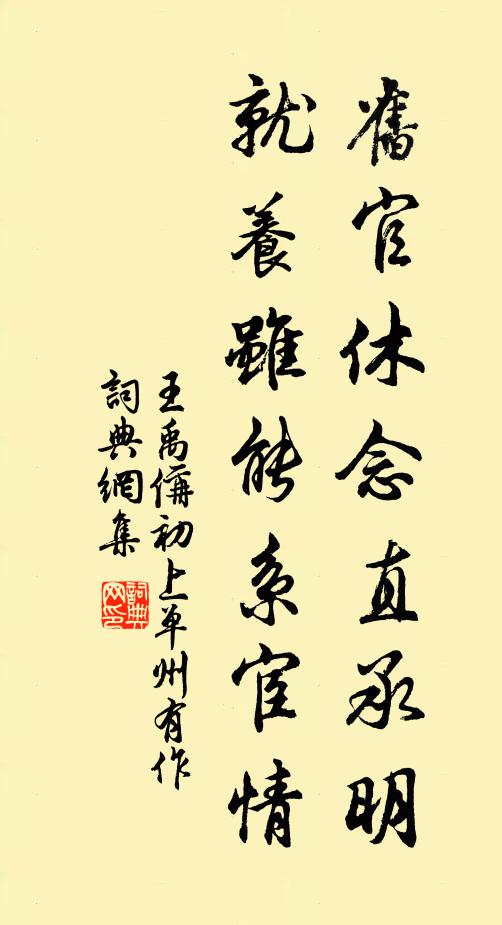 舊官休念直承明
就養雖能系宦情
王禹偁初上單州有作
詞典網集
詞典网印